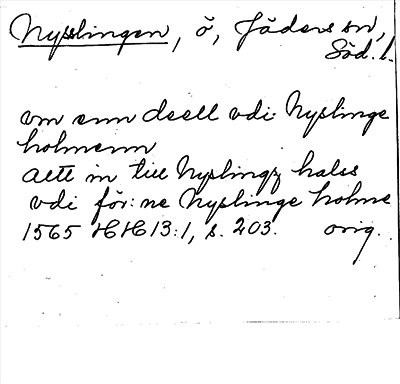 Nysslingen, ö, Jäders sn,
Söd. l.
vm enn deell vdi Nyslinge
holmenn
aett in till Nyslingz halss
vdi för:ne Nyslinge holme
1565 HH 13:1, s. 203. orig.